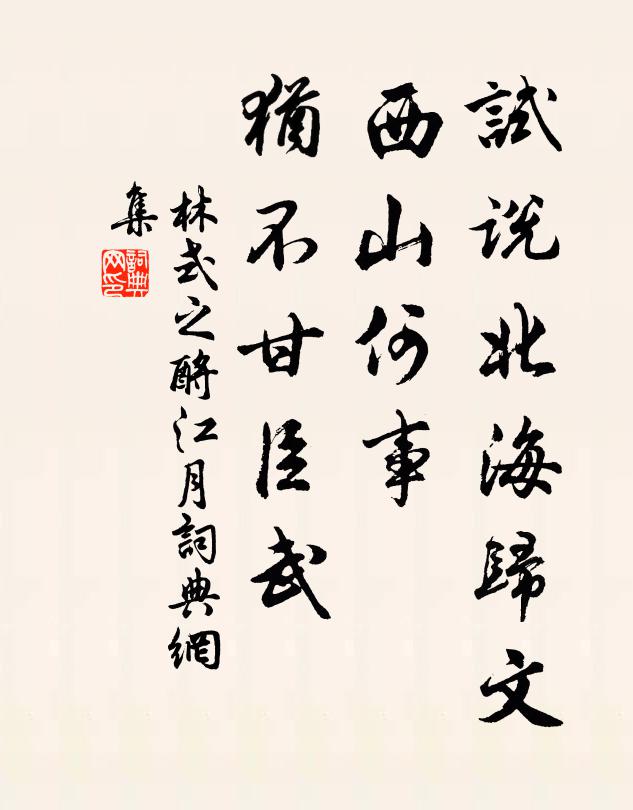 試说北海歸文
西山何事
猶不甘臣武
林式之酹江月詞典網
集
詞典
网印